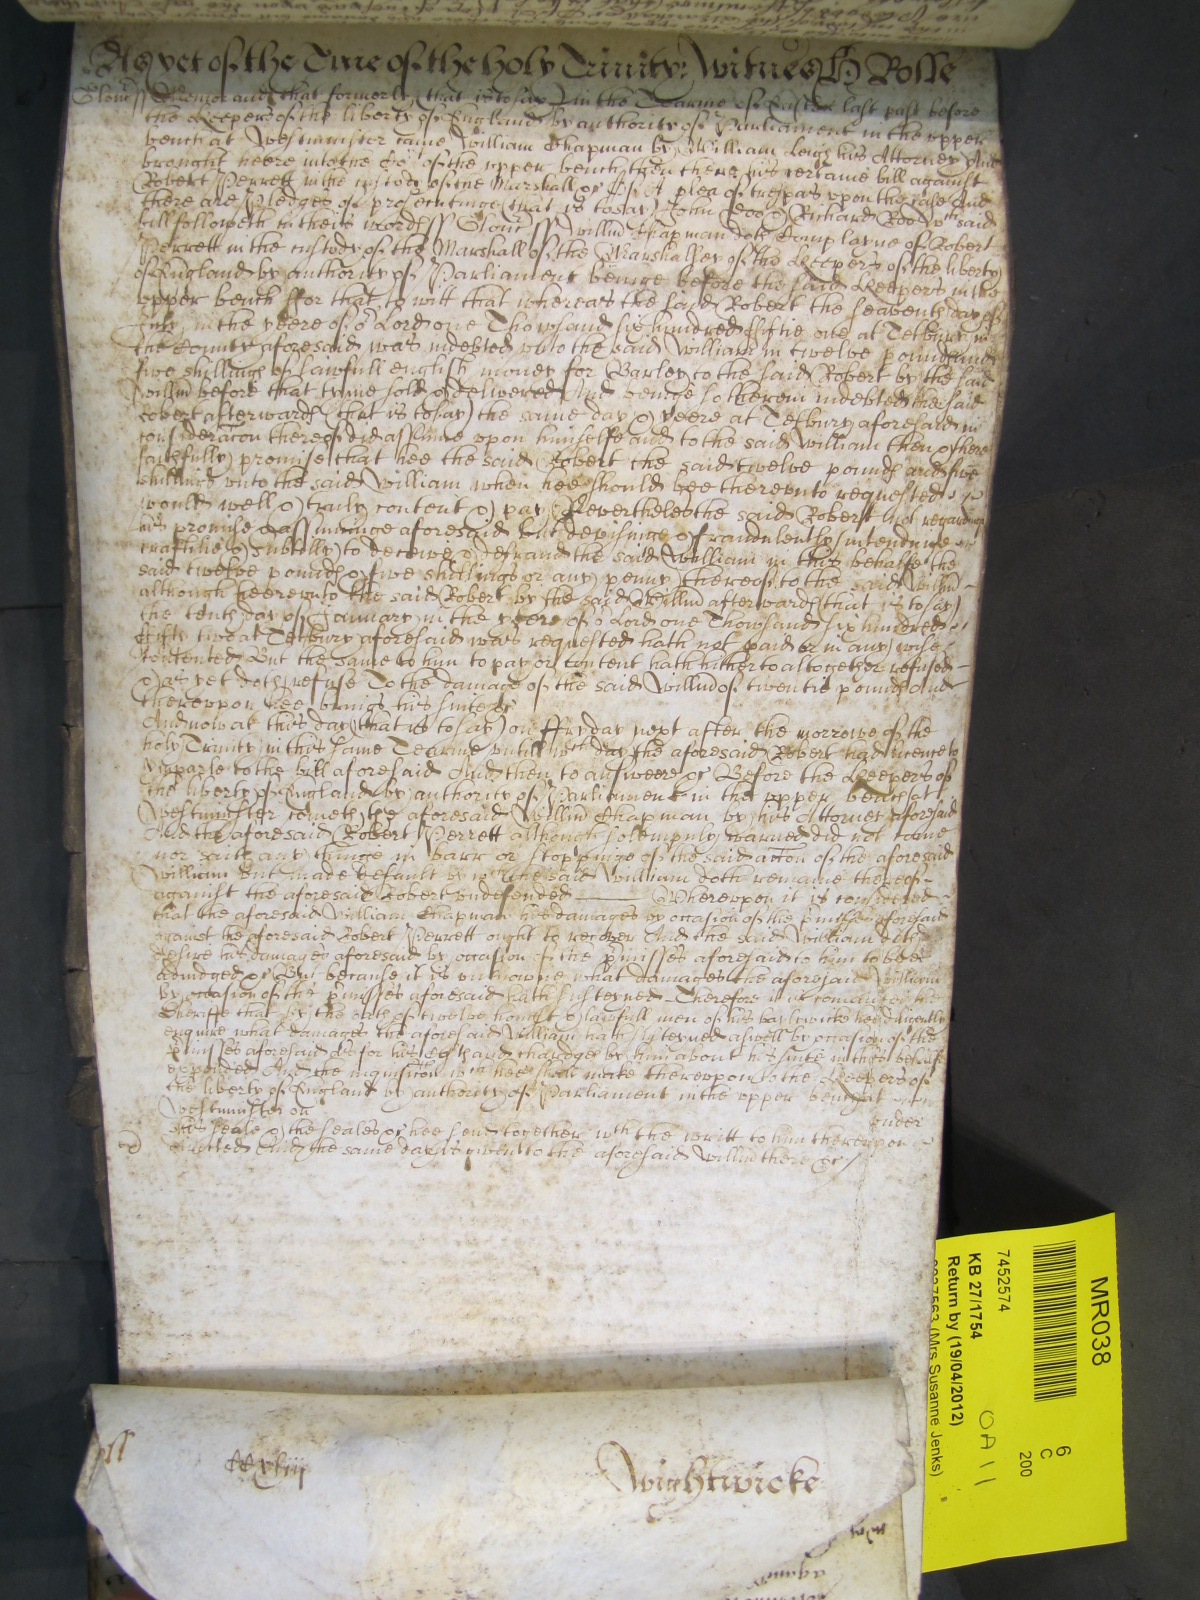 As yet of the Time of the holy Trinity: Witnes H Rolle
Glouc ss Memorandum that formerly (that is to say) in the Tearme of Easter last past before
the Keepers of the liberty of England by authority of Parliament in the upper
bench at Westminster came William Chapman by William Leigh his Attorney And
brought heere into the Co:rt of the upper bench then there his certaine bill against
Robert Perrett in the custody of the Marshall &c Of A plea of trespas upon the case And
there are Pledges of prosecutinge (that is to say) John Doo & Richard Roo wch said
bill followeth in theis wordes ss Glouc ss Willm Chapman doth Complayne of Robert
Perrett in the custody of the Marshall of the Marshalsey of the Keepers of the liberty
of England by authority of Parliament beinge before the said Keepers in the
upper bench ffor that to witt that whereas the said Robert the seaventh day of
July in the yeere of or Lord one Thowsand six hundred fiftie one at Tetbury in
the County aforesaid was indebted unto the said William in twelve pounds and
five shillings of lawfull english money for Barley to the said Robert by the said
Willm before that tyme sold & delivered And beinge so therein indebted the said
Robert afterwards (that is to say) the same day & yeere at Tetbury aforesaid in
consideracon thereof did assume upon himselfe and to the said William then & there
faithfully promise that hee the said Robert the said twelve pounds and five
shillings unto the said William when hee should bee thereunto requested
would well & truly content & pay Neverthelesthe said Robert not regarding
his promise & assuminge aforesaid but devisinge & fraudulently intendinge
craftilie & subtilly to deceive & defraud the said William in this behalfe the
said twelve pounds & five shillings or any penny thereof to the said Willm
although heereunto the said Robert by the said Willm afterwards (that is to say)
the tenth day of January in the yeere of or Lord one Thowsand six hundred
fifty two at Tetbury aforesaid was requested hath not paid or in any wise
Contented But the same to him to pay or content hath hitherto altogether refused
& as yet doth refuse To the damage of the said Willm of twentie pounds And
thereupon hee brings his suite &c
And now at this day (that is to say) on ffryday next after the morrowe of the
holy Trinity in this same Tearme untill wch day the aforesaid Robert had licence to
imparle to the bill aforesaid And then to answeere &c Before the Keepers of
the liberty of England by authority of Parliament in the upper bench att
Westminster cometh the aforesaid Willm Chapman by his Attorney aforesaid
And the aforesaid Robert Perrett although solempnly warned did not come
nor saith any thinge in barr or stoppinge of the said accon of the aforesaid
William But made default by wch the said William doth remaine thereof
against the aforesaid Robert undefended Whereupon it is considered
that the aforesaid William Chapman his damages by occasion of the p'misses aforesaid
against the aforesaid Robert Perrett ought to recover And the said William doth
desire his damages aforesaid by occasion of the p'misses aforesaid to him to bee
adiudged &c But because it is unknowne what damages the aforesaid William
by occasion of the p'misses aforesaid hath susteyned Therefore it is comanded the
Sheriffe that by the oath of twelve honest & lawfull men of his bayliwicke hee diligently
enquire what damages the aforesaid William hath susteyned aswell by occasion of the
p'misses aforesaid As for his Costs and chardges by him about his suite in this behalfe
expended And the inquisicon wch hee shall make thereupon to the Keepers of
the liberty of England by authority of Parliament in the upper bench at
Westminster on
under
his seale & the seales &c hee send together wth the writt to him thereupon
directed And the same day is given to the aforesaid Willm there &c
CCxliij
Wightwicke
MR038
6
C
200
7452574
KB 27/1754
Return by (19/04/2012)
(Mrs Susanne Jenks)
OA11